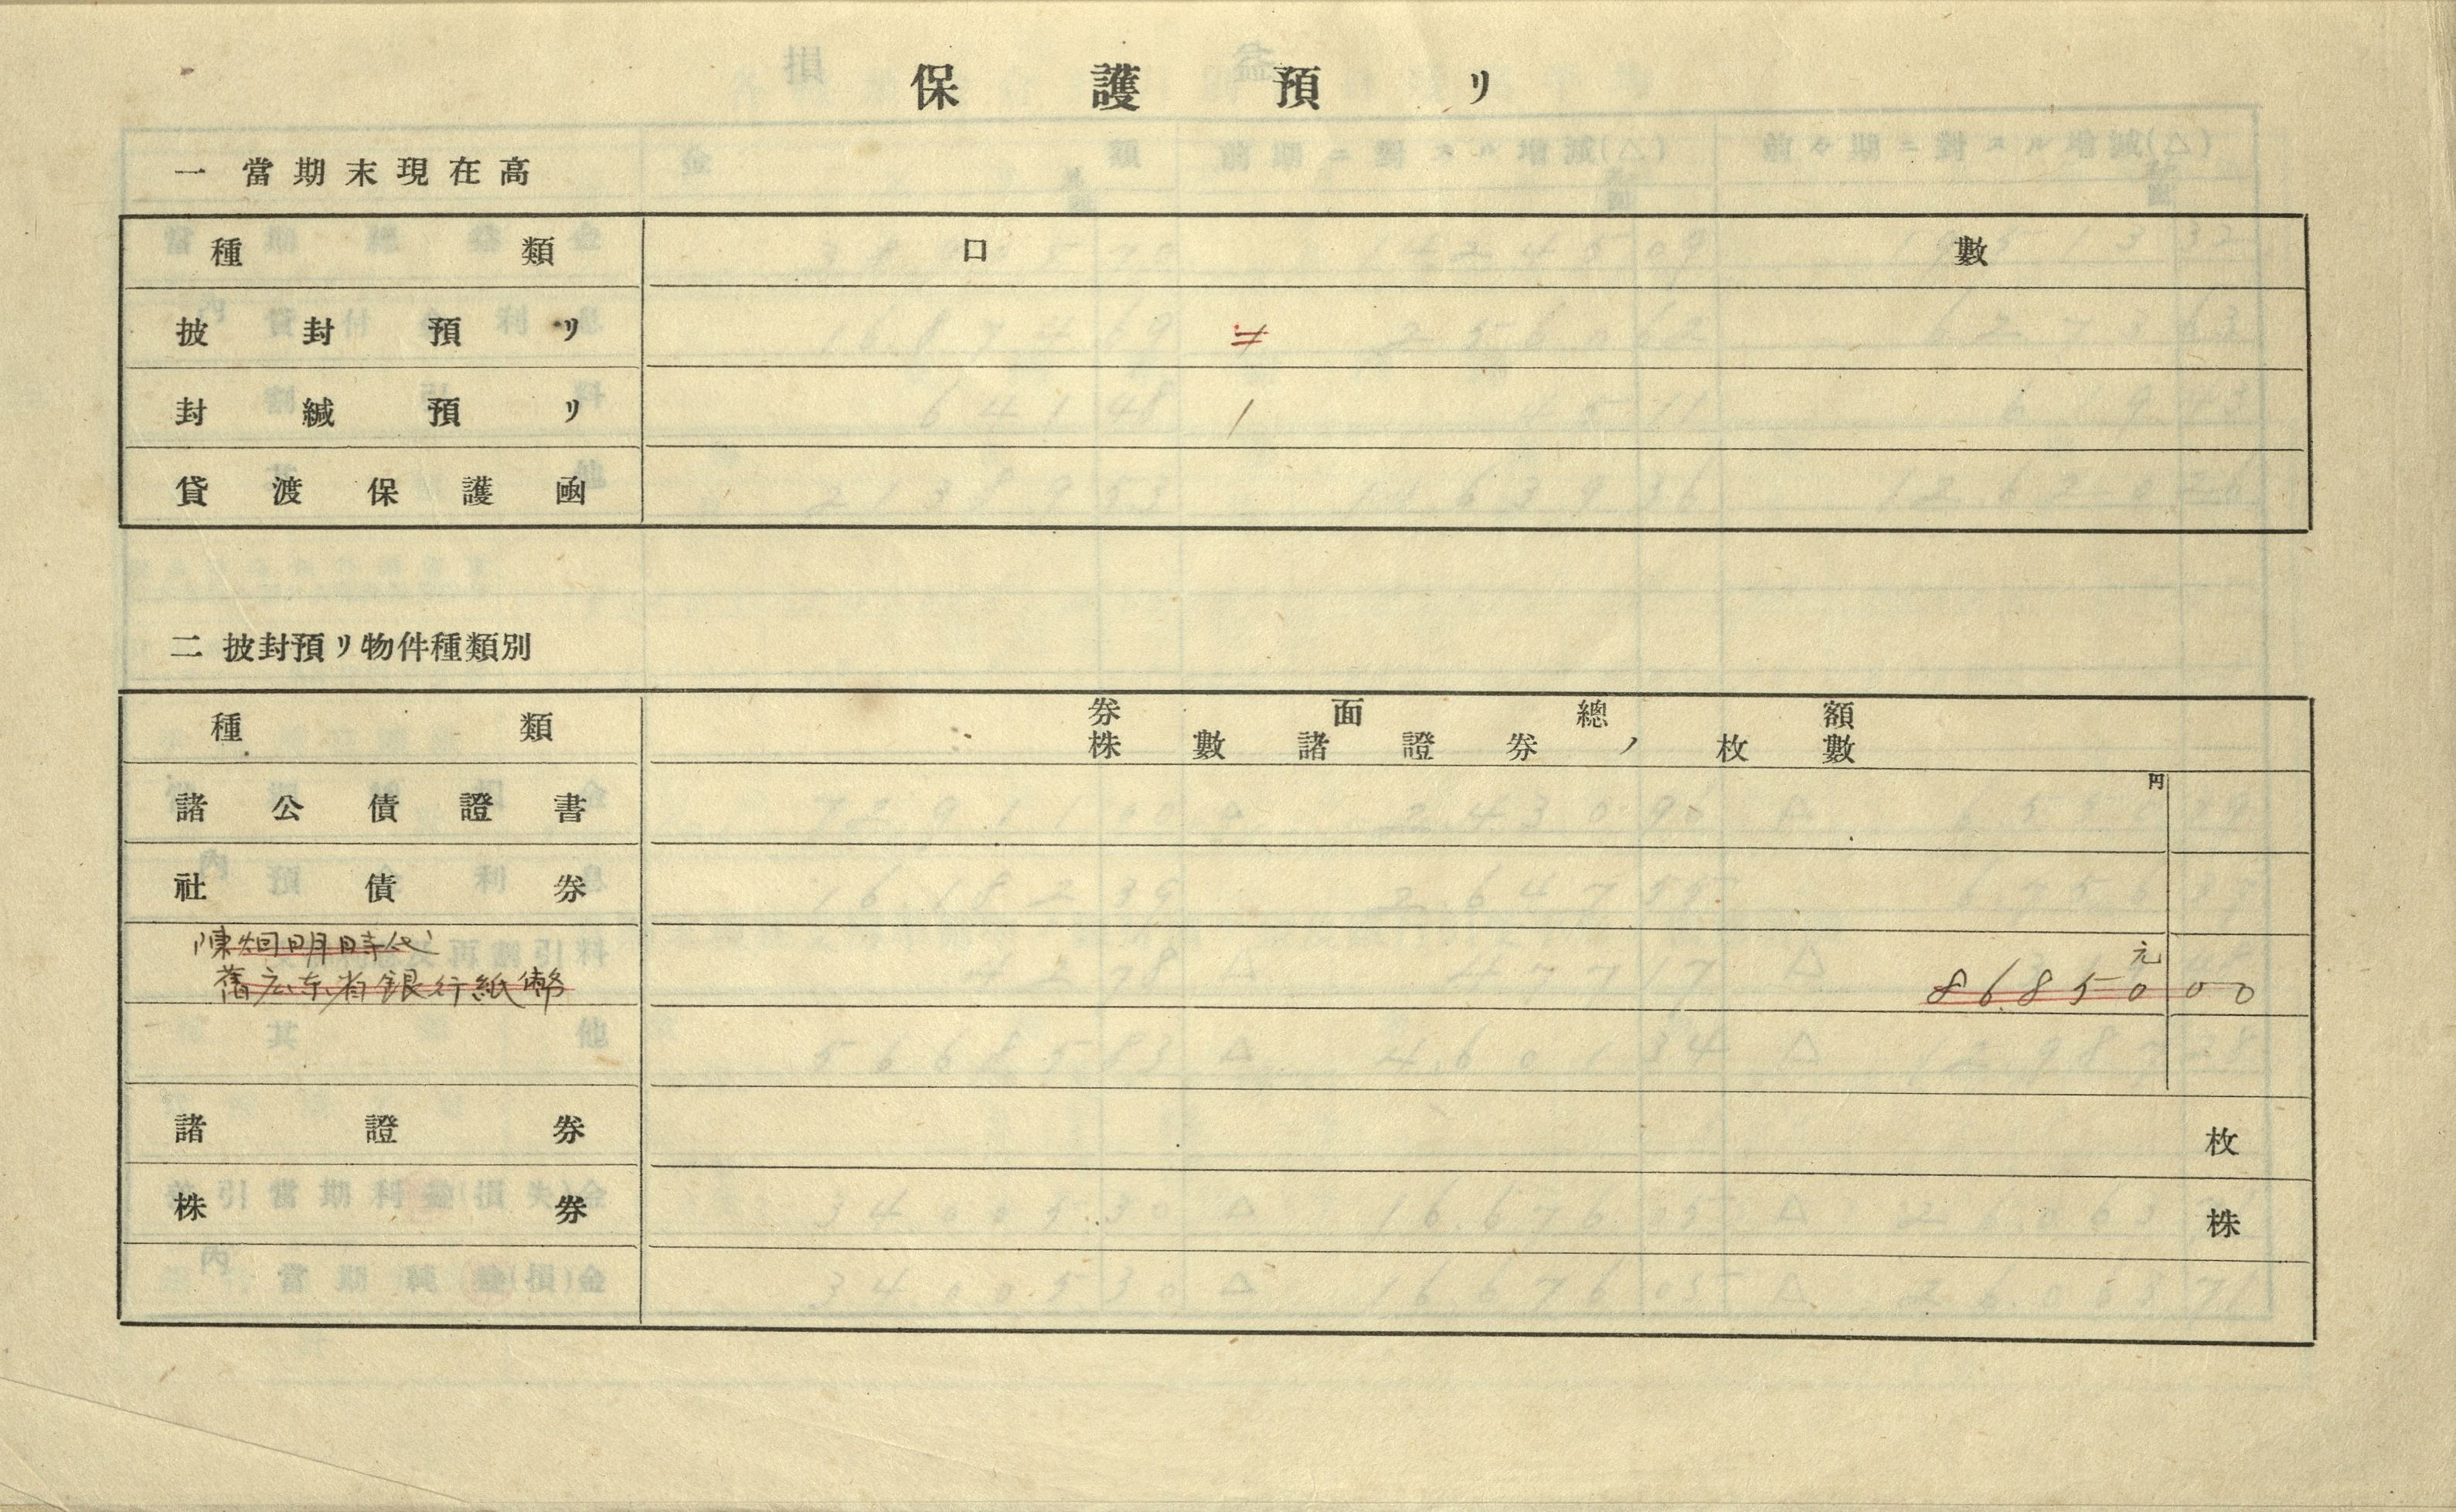 保護預リ
一 當期末現在高
種類 口數
披封預リ
封緘預リ 1
貸渡保護凾
二 披封預リ物件種類別
種類 券面總額
株數諸證券ノ枚數
諸公債證書 円
社債券
陳烱明時代
舊広东省銀行紙幣 元 86,850 00
諸證券 枚
株券 株